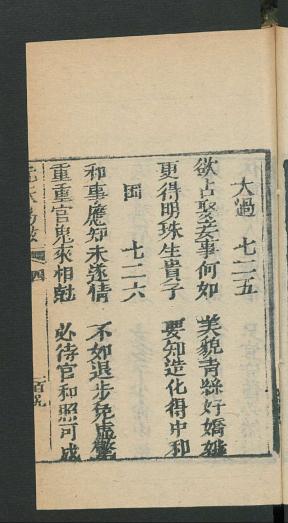 大過 七二五
欲占娶妾事何如 美貌青絲好嬌娘
更得明珠生貴子 要知造化得中和
困 七二六
和事應知未遂情 不如退步免虛驚
重重官鬼來相尅 必待官和照可成
四